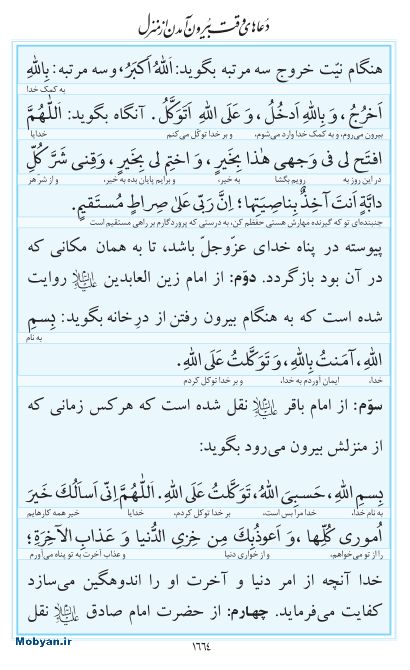 دعاهای وقت بیرون آمدن از منزل
هنگام نیّت خروج سه مرتبه بگوید: اَللهُ اَکبَرُ، وسه مرتبه: بِاللهِ
به کمک خدا
اَخرُجُ، وَ بِاللهِ اَدخُلُ، وَ عَلَی اللهِ اَتَوَکَّلُ. آنگاه بگوید: اَللّٰهُمَّ
بیرون می‌روم، و به کمک خدا وارد می‌شوم، و بر خدا توکّل می‌کنم خدایا
افتَح لی فی وَجهی هٰذا بِخَیرٍ، وَ اختِم لی بِخَیرٍ، وَقِنی شَرَّ کُلِّ
در این روز به رویم بگشا به خیر، و برایم پایان بده به خیر، و از شرّ هر
دابَّةٍ اَنتَ آخِذٌ بِناصِیَتِها؛ اِنَّ رَبّی عَلیٰ صِراطٍ مُستَقیمٍ.
جنبنده‌ای تو که گیرنده مهارش هستی حفظم کن، به درستی که پروردگارم بر راهی مستقیم است
پیوسته در پناه خدای عزّوجلّ باشد، تا به همان مکانی که
در آن بود بازگردد. دوّم: از امام زین العابدین علیه‌السلام روایت
شده است که به هنگام بیرون رفتن از درِخانه بگوید: بِسمِ
به نام
اللهِ، آمَنتُ بِاللهِ، وَ تَوَکَّلتُ عَلَی اللهِ.
خدا، ایمان آوردم به خدا، و بر خدا توکل کردم
سوّم: از امام باقر علیه‌السلام نقل شده است که هرکس زمانی که
از منزلش بیرون می‌رود بگوید:
بِسمِ اللهِ، حَسبِیَ اللهُ، تَوَکَّلتُ عَلَی اللهِ. اَللّٰهُمَّ اِنّی اَسالُكَ خَیرَ
به نام خدا، خدا مرا بس است، بر خدا توکل کردم، خدایا خیر همه کارهایم
اُموری کُلِّها، وَ اَعوذُبِكَ مِن خِزیِ الدُّنیا وَ عَذابِ الآخِرَةِ؛
را از تو می‌خواهم، و از خواری دنیا و عذاب آخرت به تو پناه می‌آورم
خدا آنچه از امر دنیا و آخرت او را اندوهگین می‌سازد
کفایت می‌فرماید. چهارم: از حضرت امام صادق علیه‌السلام نقل
۱۶۶۴
Mobyan.ir